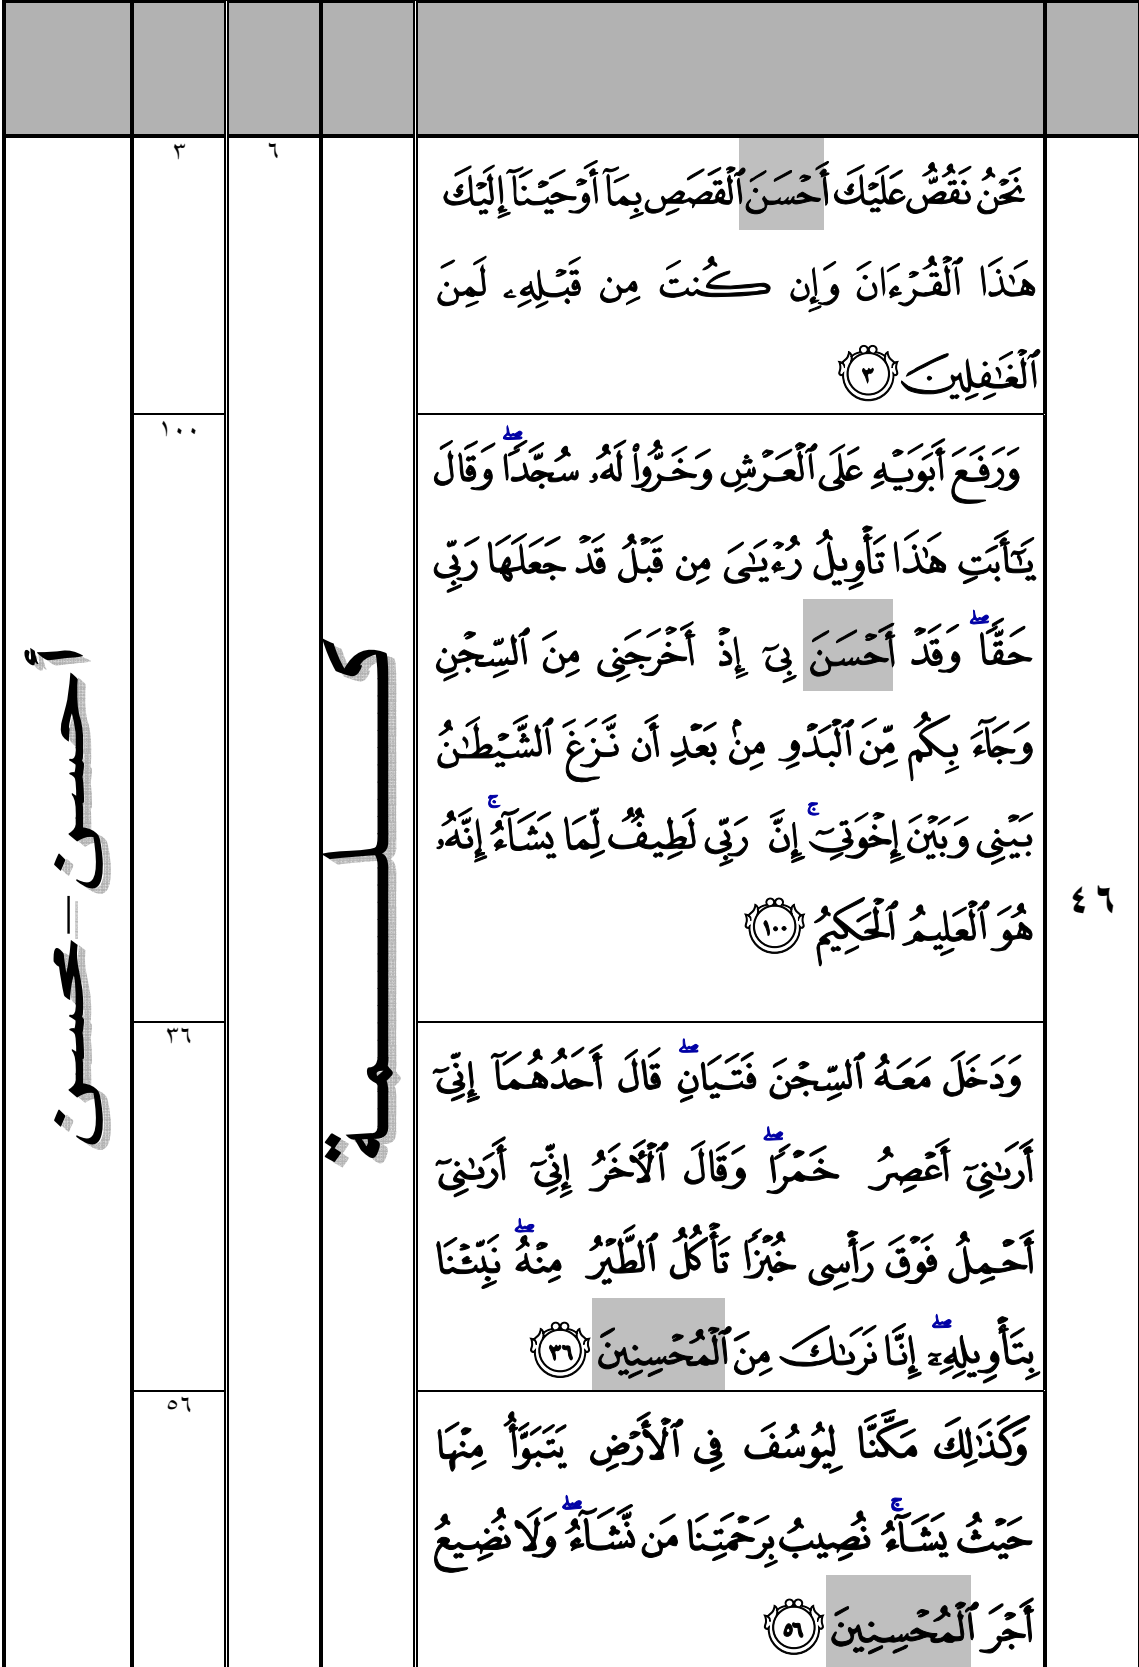 ٤٦
نَحْنُ نَقُصُّ عَلَيْكَ أَحْسَنَ ٱلْقَصَصِ بِمَآ أَوْحَيْنَآ إِلَيْكَ
هَٰذَا ٱلْقُرْءَانَ وَإِن كُنتَ مِن قَبْلِهِۦ لَمِنَ
ٱلْغَٰفِلِينَ ٣
وَرَفَعَ أَبَوَيْهِ عَلَى ٱلْعَرْشِ وَخَرُّوا۟ لَهُۥ سُجَّدًا ۖ وَقَالَ
يَٰٓأَبَتِ هَٰذَا تَأْوِيلُ رُءْيَٰىَ مِن قَبْلُ قَدْ جَعَلَهَا رَبِّى
حَقًّا ۖ وَقَدْ أَحْسَنَ بِىٓ إِذْ أَخْرَجَنِى مِنَ ٱلسِّجْنِ
وَجَآءَ بِكُم مِّنَ ٱلْبَدْوِ مِنۢ بَعْدِ أَن نَّزَغَ ٱلشَّيْطَٰنُ
بَيْنِى وَبَيْنَ إِخْوَتِىٓ ۚ إِنَّ رَبِّى لَطِيفٌ لِّمَا يَشَآءُ ۚ إِنَّهُۥ
هُوَ ٱلْعَلِيمُ ٱلْحَكِيمُ ١٠٠
وَدَخَلَ مَعَهُ ٱلسِّجْنَ فَتَيَانِ ۖ قَالَ أَحَدُهُمَآ إِنِّىٓ
أَرَىٰنِىٓ أَعْصِرُ خَمْرًا ۖ وَقَالَ ٱلْأَخَرُ إِنِّىٓ أَرَىٰنِىٓ
أَحْمِلُ فَوْقَ رَأْسِى خُبْزًا تَأْكُلُ ٱلطَّيْرُ مِنْهُ ۖ نَبِّئْنَا
بِتَأْوِيلِهِۦٓ ۖ إِنَّا نَرَىٰكَ مِنَ ٱلْمُحْسِنِينَ ٣٦
وَكَذَٰلِكَ مَكَّنَّا لِيُوسُفَ فِى ٱلْأَرْضِ يَتَبَوَّأُ مِنْهَا
حَيْثُ يَشَآءُ ۚ نُصِيبُ بِرَحْمَتِنَا مَن نَّشَآءُ ۖ وَلَا نُضِيعُ
أَجْرَ ٱلْمُحْسِنِينَ ٥٦
كلمة
٦
٣
١٠٠
٣٦
٥٦
أحسن – محسن